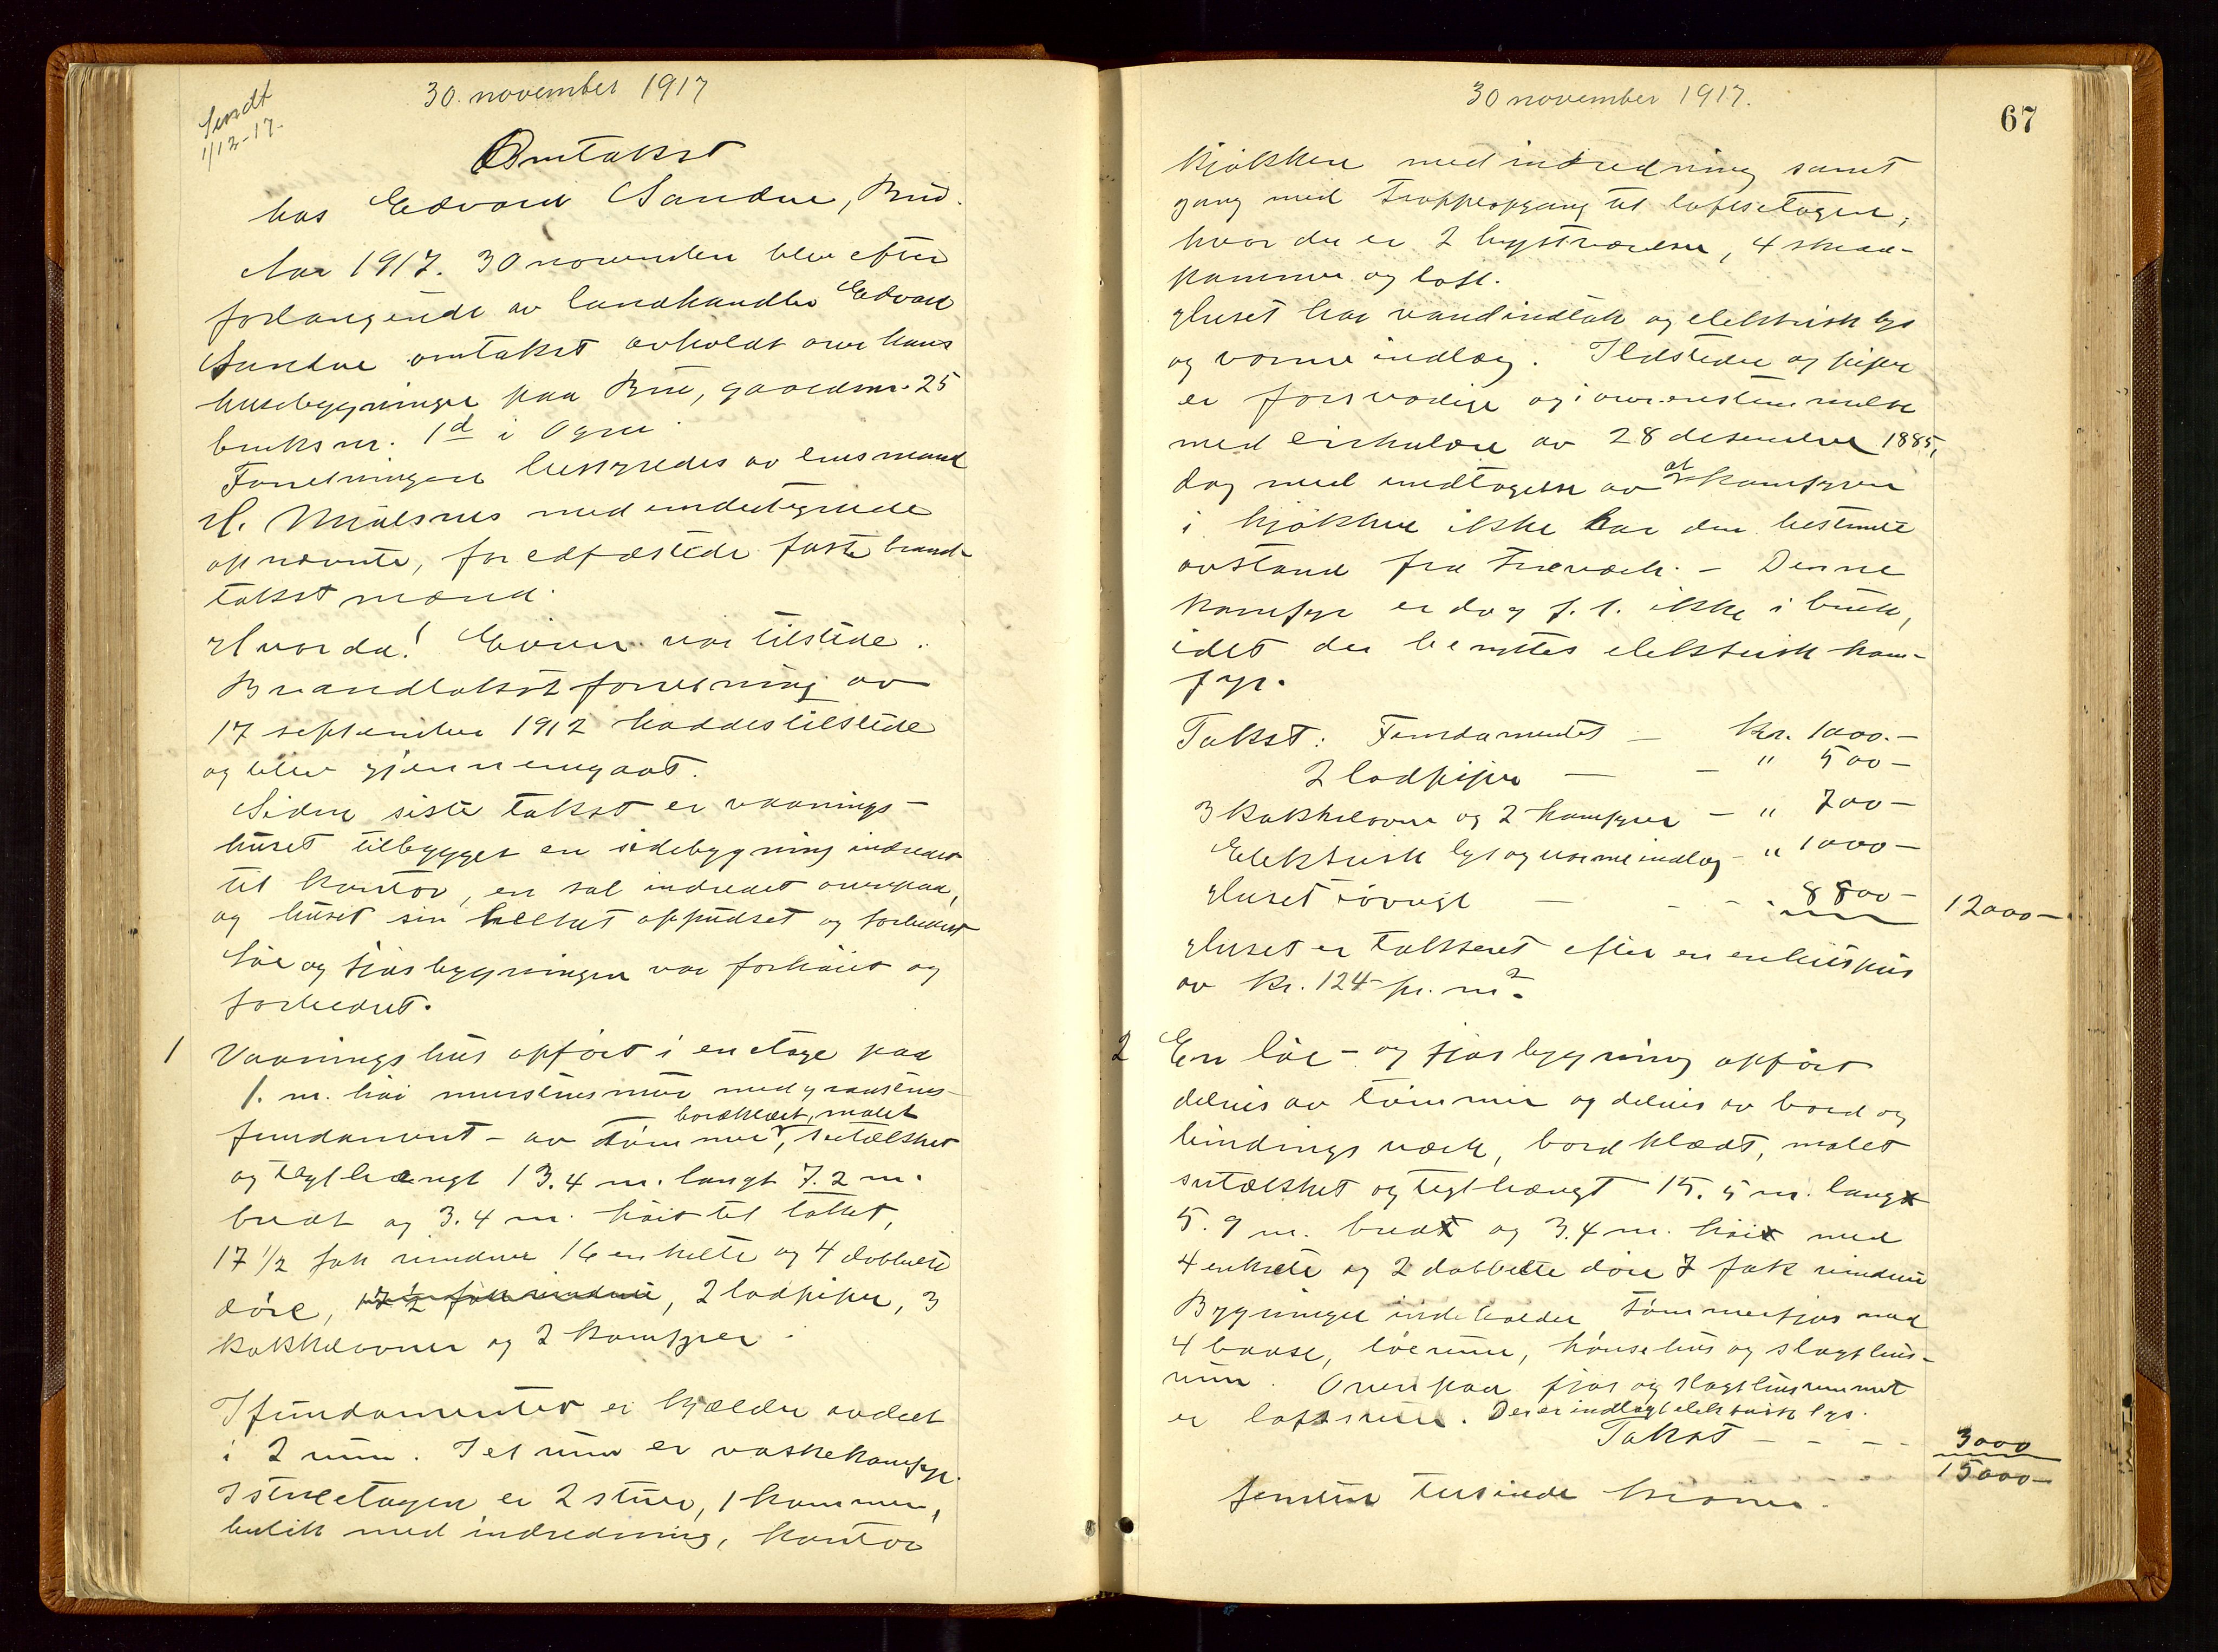 Sendt
1/12-17-
30. november 1917
Omtakst
hos Edvard Sandve, Bru.
Aar 1917. 30 november blev efter
forlangende av landhandler Edvard
Sandve omtakst avholdt over hans
husebygninger paa Bru, gaardsnr. 25
bruksnr. 1d i Ogna.
Forretningen bestyredes av lensmand
H. Mjølsnes med undertegnede
opnævnte, for edfæstede faste brand-
takstmænd.
Hvorda! Eieren var tilstede.
Brandtakstforretning av
17 september 1912 haddes tilstede
og blev gjennemgaat.
Siden siste takst er vaanings-
huset tilbygget en sidebygning indredet
til kontor, en sal indredet ovenpaa,
og huset sin helhet oppudset og forbedret
Løe og fjøsbygningen var forhøiet og
forbedret.
1 Vaaningshus opført i en etage paa
1. m. høi murstensmur med graastens-
fundament - av tømmer, bordklædt, malet sutælsket
og teglhængt 13.4 m. langt 7.2 m.
bredt og 3.4 m. høit til taket,
17 1/2 fak vinduer 16 enkelte og 4 dobbelte
døre, 17 1/2 fak vinduer, 2 ladpiper, 3
kakkelovner og 2 komfyrer.
I fundamentet er kjælder avdelt
i 2 rum. I et rum er vaskekomfyr.
I stueetagen er 2 stuer, 1 kammer,
butik med indredning, kontor
30 november 1917.
67
kjøkken med indredning samt
gang med trappeopgang til loftsetagen,
hvor der er 2 kvistværelser, 4 skraa-
kammer og loft.
Huset har vandindtak og elektrisk lys
og varme indlæg. Ildsteder og piper
er forsvarlige og i overenstemmelse
med cirkulære av 28 desember 1885,
dog med undtagelse av at komfyren
i kjøkken ikke har den bestemte
avstand fra træværk. - Denne
komfyr er dog f. t. ikke i bruk,
idet der benyttes elektrisk kom-
fyr.
Takst: Fundamentet - Kr. 1000.-
2 ladpiper - - " 500-
3 kakkelovner og 2 komfyrer - " 700-
Elektrisk lys og varmeindlæg - " 1000-
Huset iøvrigt - - - 8800- 12000-
Huset er takseret efter en enhetspris
av kr. 124- pr. m².
2 En løe- og fjøsbygning opført
delvis av tømmer og delvis av bord og
bindingsværk, bordklædt, malet
sutælsket og teglhængt 15.5 m. lang
5.9 m. bred og 3.4 m. høi med
4 enkelte og 2 dobbelte døre 7 fak vinduer
Bygningen indeholder tømmerfjøs med
4 baase, løerum, hønsehus og slagthus-
rum. Ovenpaa fjøs og slagthusrummet
er loftsrum. Der er indlagt elektrisk lys.
Takst - - - - 3000
15000-
femten tusinde kroner.